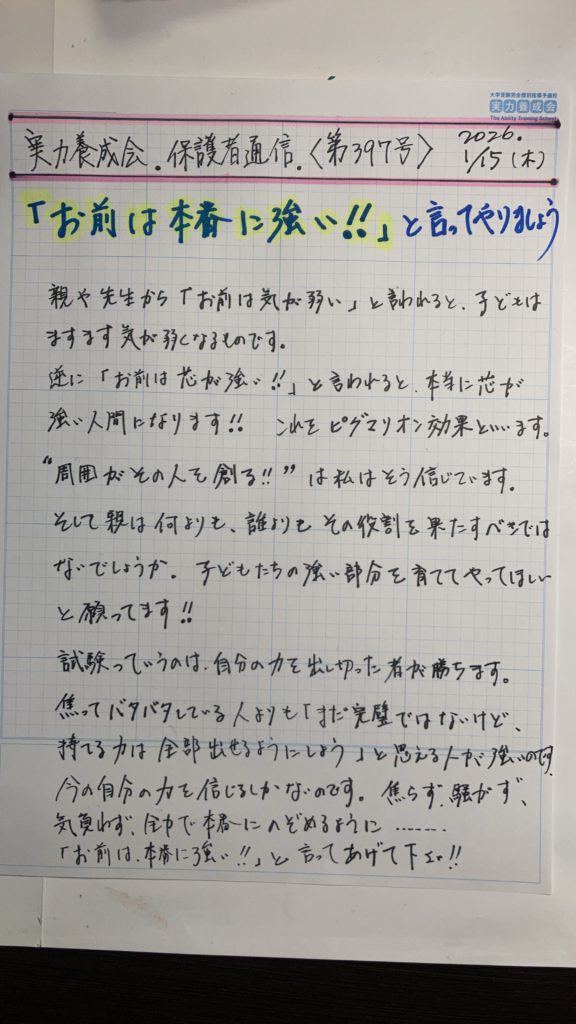 大学受験完全個別指導予備校
実力養成会
The Ability Training School
実力養成会.保護者通信.〈第397号〉 2026. 1/15(木)
「お前は本番に強い!!」と言ってやりましょう
親や先生から「お前は気が弱い」と言われると、子どもは
ますます気が弱くなるものです。
逆に「お前は芯が強い!!」と言われると、本当に芯が
強い人間になります!! これをピグマリオン効果といいます。
“周囲がその人を創る!!”は私はそう信じています。
そして親は何よりも、誰よりもその役割を果たすべきでは
ないでしょうか。子どもたちの強い部分を育ててやってほしい
と願ってます!!
試験っていうのは、自分の力を出し切った者が勝ちます。
焦ってバタバタしている人よりも「まだ完璧ではないけど、
持てる力は全部出せるようにしよう」と思える人が強いのです。
今の自分の力を信じるしかないのです。焦らず、騒がず、
気負わず、全力で本番にのぞめるように……
「お前は、本番に強い!!」と言ってあげて下さい!!